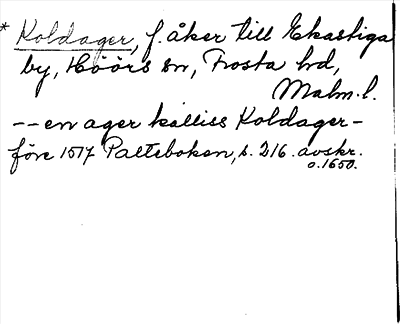 * Koldager, f. åker till Ekastiga
by, Höörs sn, Frosta hd,
Malm. l.
-- en ager kalliss Koldager -
före 1517 Palteboken, s. 216. avskr.
o. 1650.